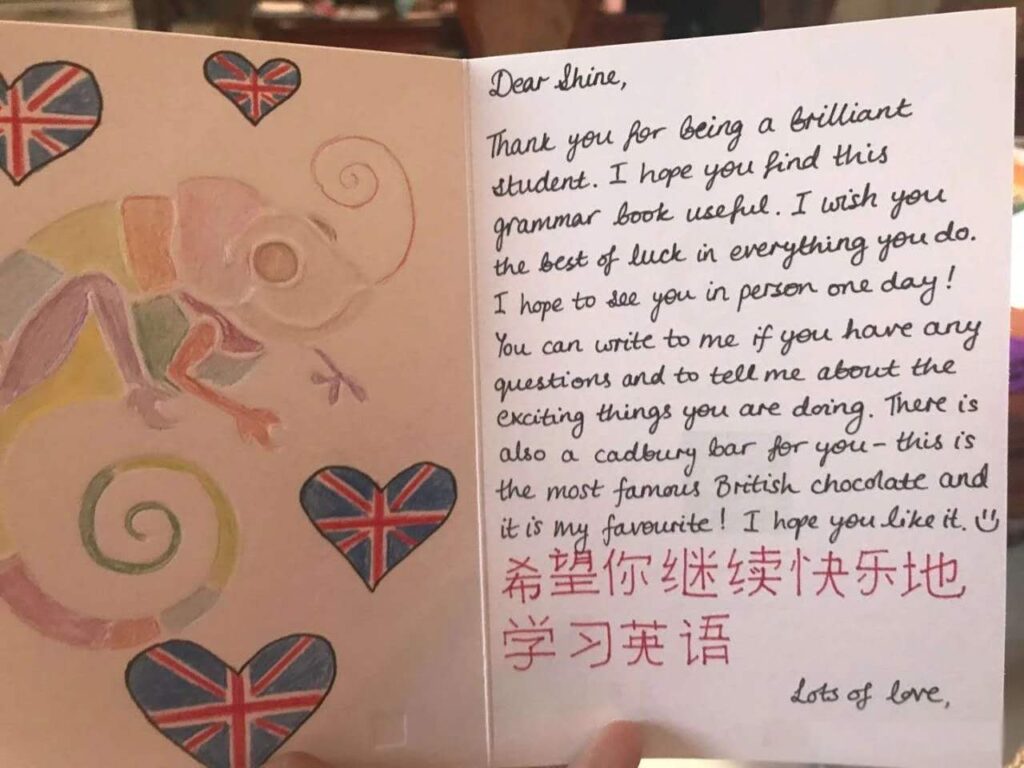 Dear Shine,
Thank you for being a brilliant
student. I hope you find this
grammar book useful. I wish you
the best of luck in everything you do.
I hope to see you in person one day!
You can write to me if you have any
questions and to tell me about the
exciting things you are doing. There is
also a cadbury bar for you - this is
the most famous British chocolate and
it is my favourite! I hope you like it. :)
希望你继续快乐地
学习英语
Lots of love,